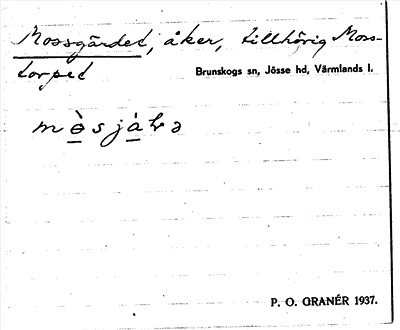 Mossgärdet, åker, tillhörig Moss-
torpet
Brunskogs sn, Jösse hd, Värmlands l.
P. O. GRANÉR 1937.